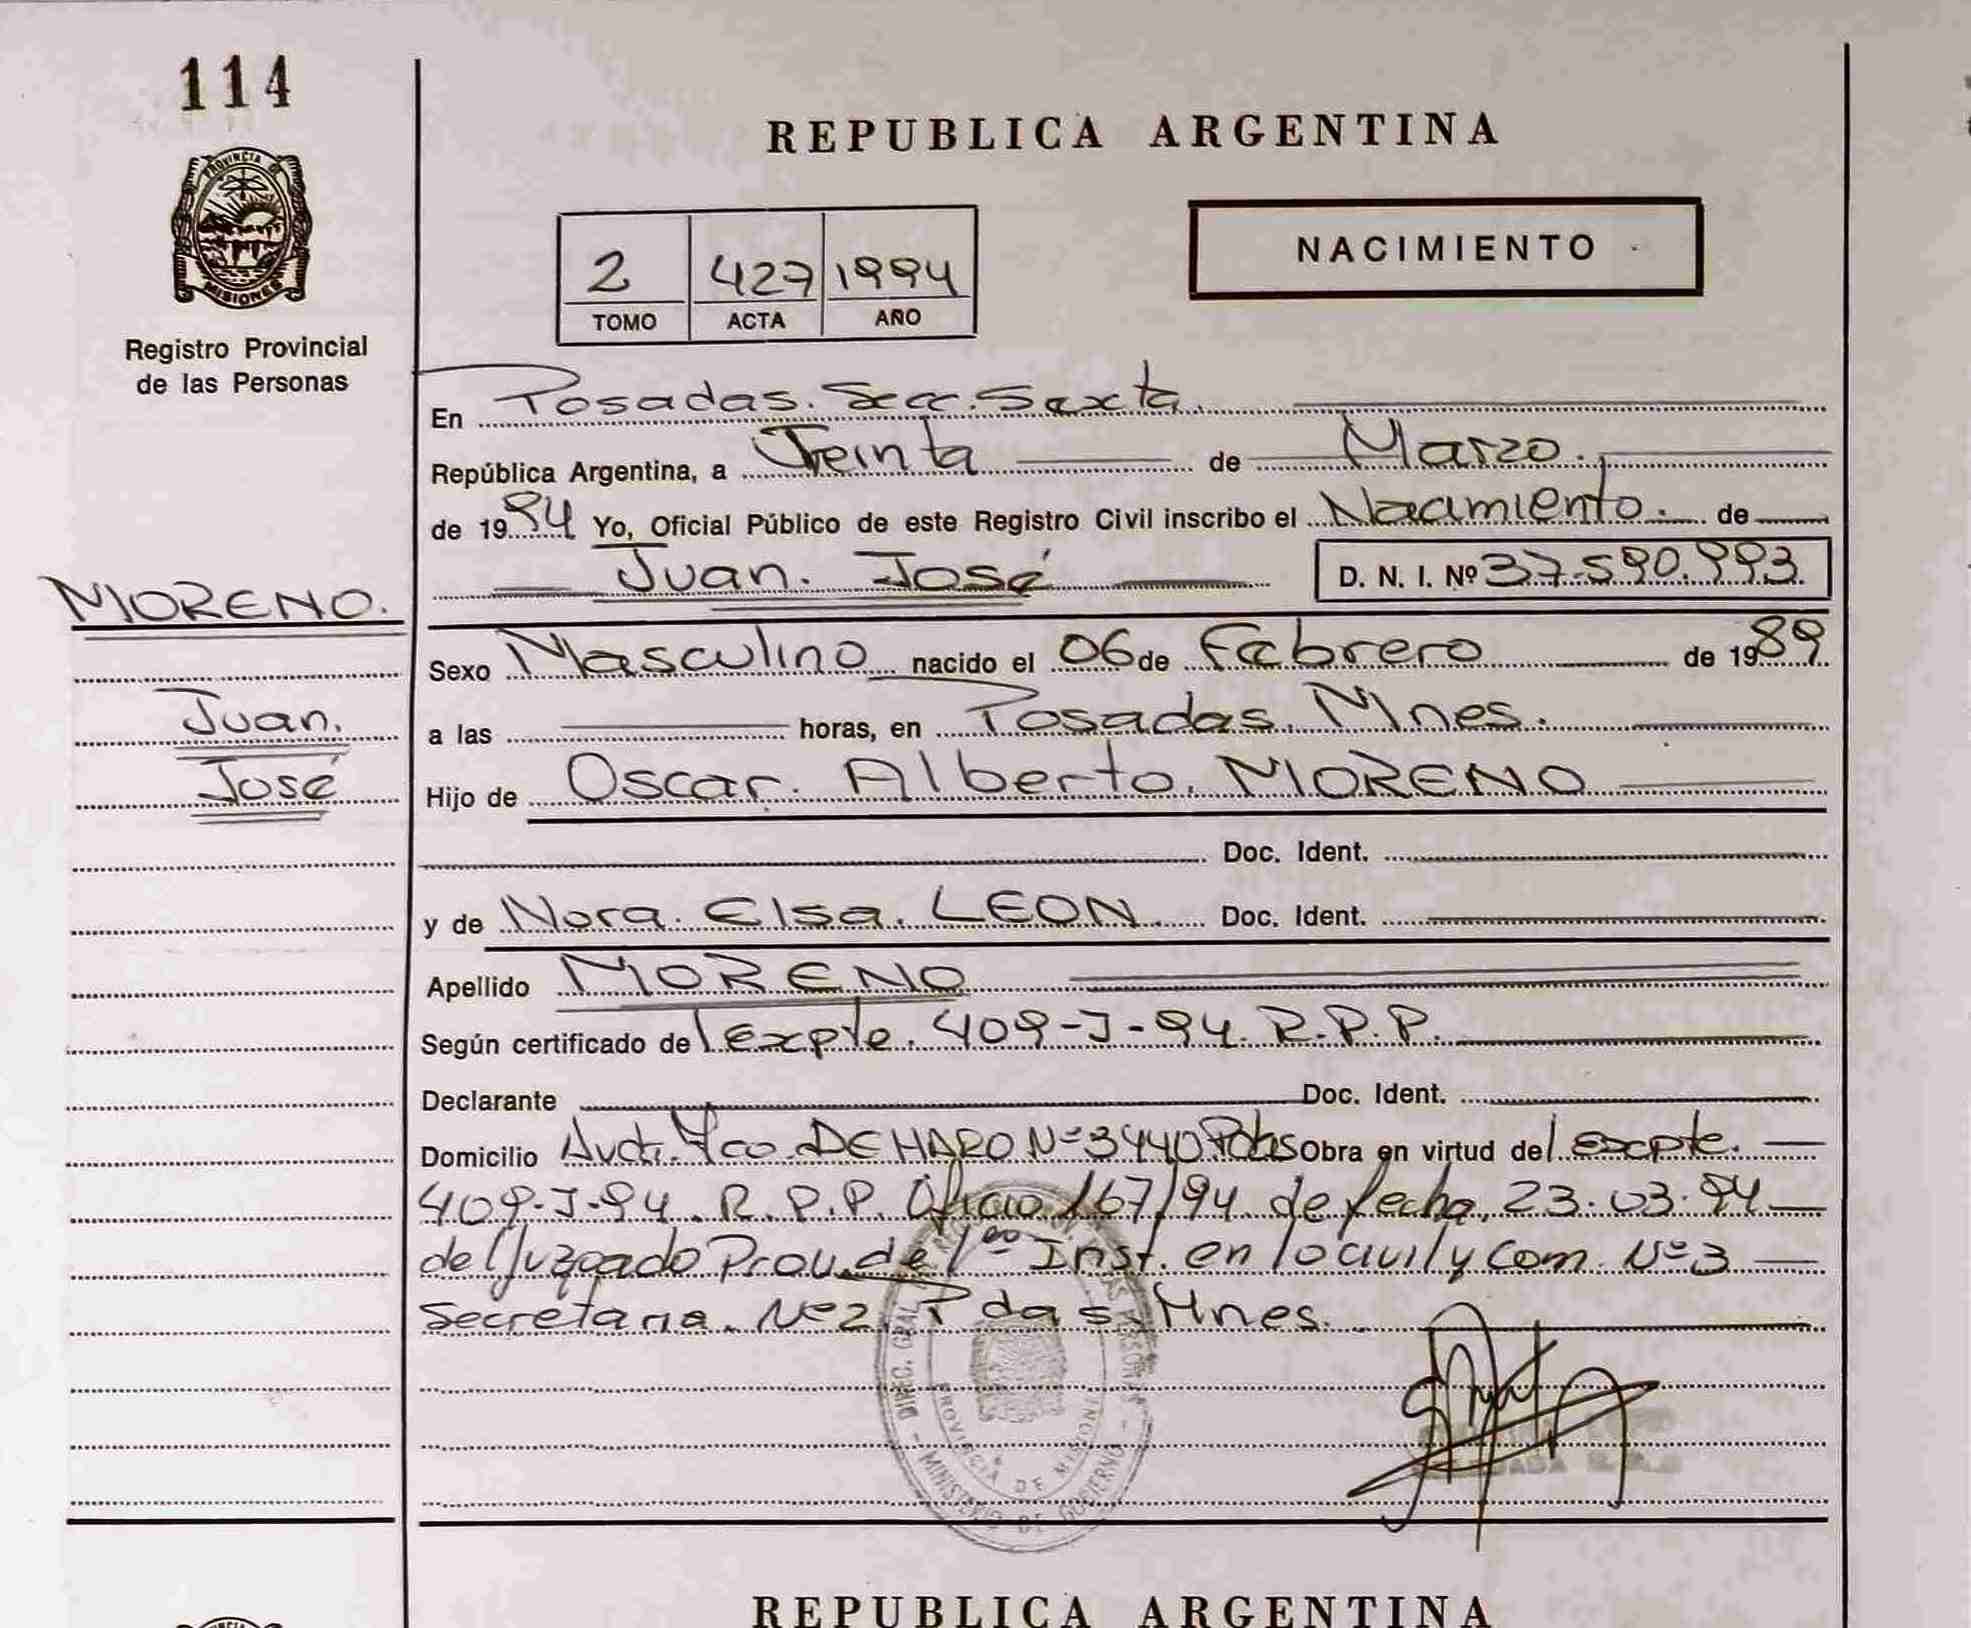 114
REPUBLICA ARGENTINA
PROVINCIA DE
MISIONES
Registro Provincial
de las Personas
NACIMIENTO
2 427 1994
TOMO ACTA AÑO
En Posadas. Secc. Sexta.
República Argentina, a Treinta de Marzo.
de 1994 Yo, Oficial Público de este Registro Civil inscribo el Nacimiento. de
Juan. José D. N. I. Nº 37.590.993
MORENO.
Juan.
José
Sexo Masculino nacido el 06 de Febrero de 1989
a las horas, en Posadas. Mnes.
Hijo de Oscar. Alberto. MORENO
Doc. Ident.
y de Nora. Elsa. LEON. Doc. Ident.
Apellido MORENO
Según certificado del Expte. 409-J-94. R.P.P.
Declarante Doc. Ident.
Domicilio Avda. Fco. DE HARO Nº 3440 Pdas Obra en virtud del Expte.
409-J-94. R.P.P. Oficio 167/94 de fecha, 23.03.94
del Juzgado Prov. de 1ra Inst. en lo civil y Com. Nº 3
Secretaria. Nº 2. Pdas. Mnes.
DIREC. GRAL. PERSONAS
PROVINCIA DE MISIONES
MINISTERIO DE GOBIERNO
REPUBLICA ARGENTINA